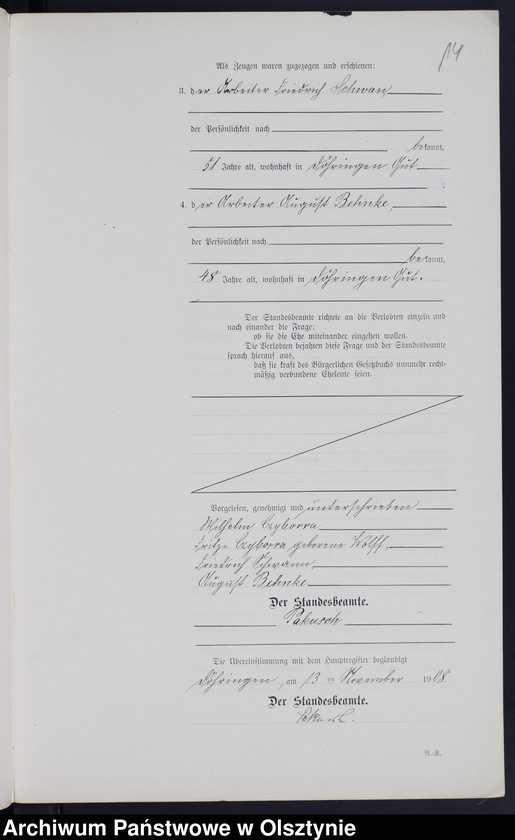 14
Als Zeugen waren zugezogen und erschienen:
3. der Arbeiter Friedrich Schwan,
der Persönlichkeit nach
bekannt,
51 Jahre alt, wohnhaft in Döhringen Gut
;
4. der Arbeiter August Behnke,
der Persönlichkeit nach
bekannt,
48 Jahre alt, wohnhaft in Döhringen Gut.
Der Standesbeamte richtete an die Verlobten einzeln und
nach einander die Frage:
ob sie die Ehe miteinander eingehen wollen.
Die Verlobten bejahten diese Frage und der Standesbeamte
sprach hierauf aus,
daß sie kraft des Bürgerlichen Gesetzbuchs nunmehr recht-
mäßig verbundene Eheleute seien.
Vorgelesen, genehmigt und unterschrieben
Wilhelm Czyborra
Czyborra geborene Wolff,
Friedrich Schwann,
August Behnke
Der Standesbeamte.
Pakusch
Die Übereinstimmung mit dem Hauptregister beglaubigt
Döhringen, am 13 ten November 1908.
Der Standesbeamte.
N.R.
Archiwum Państwowe w Olsztynie